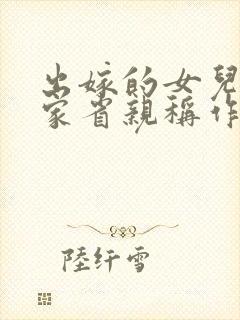 出嫁的女兒
家省親稱作
陸纤雪